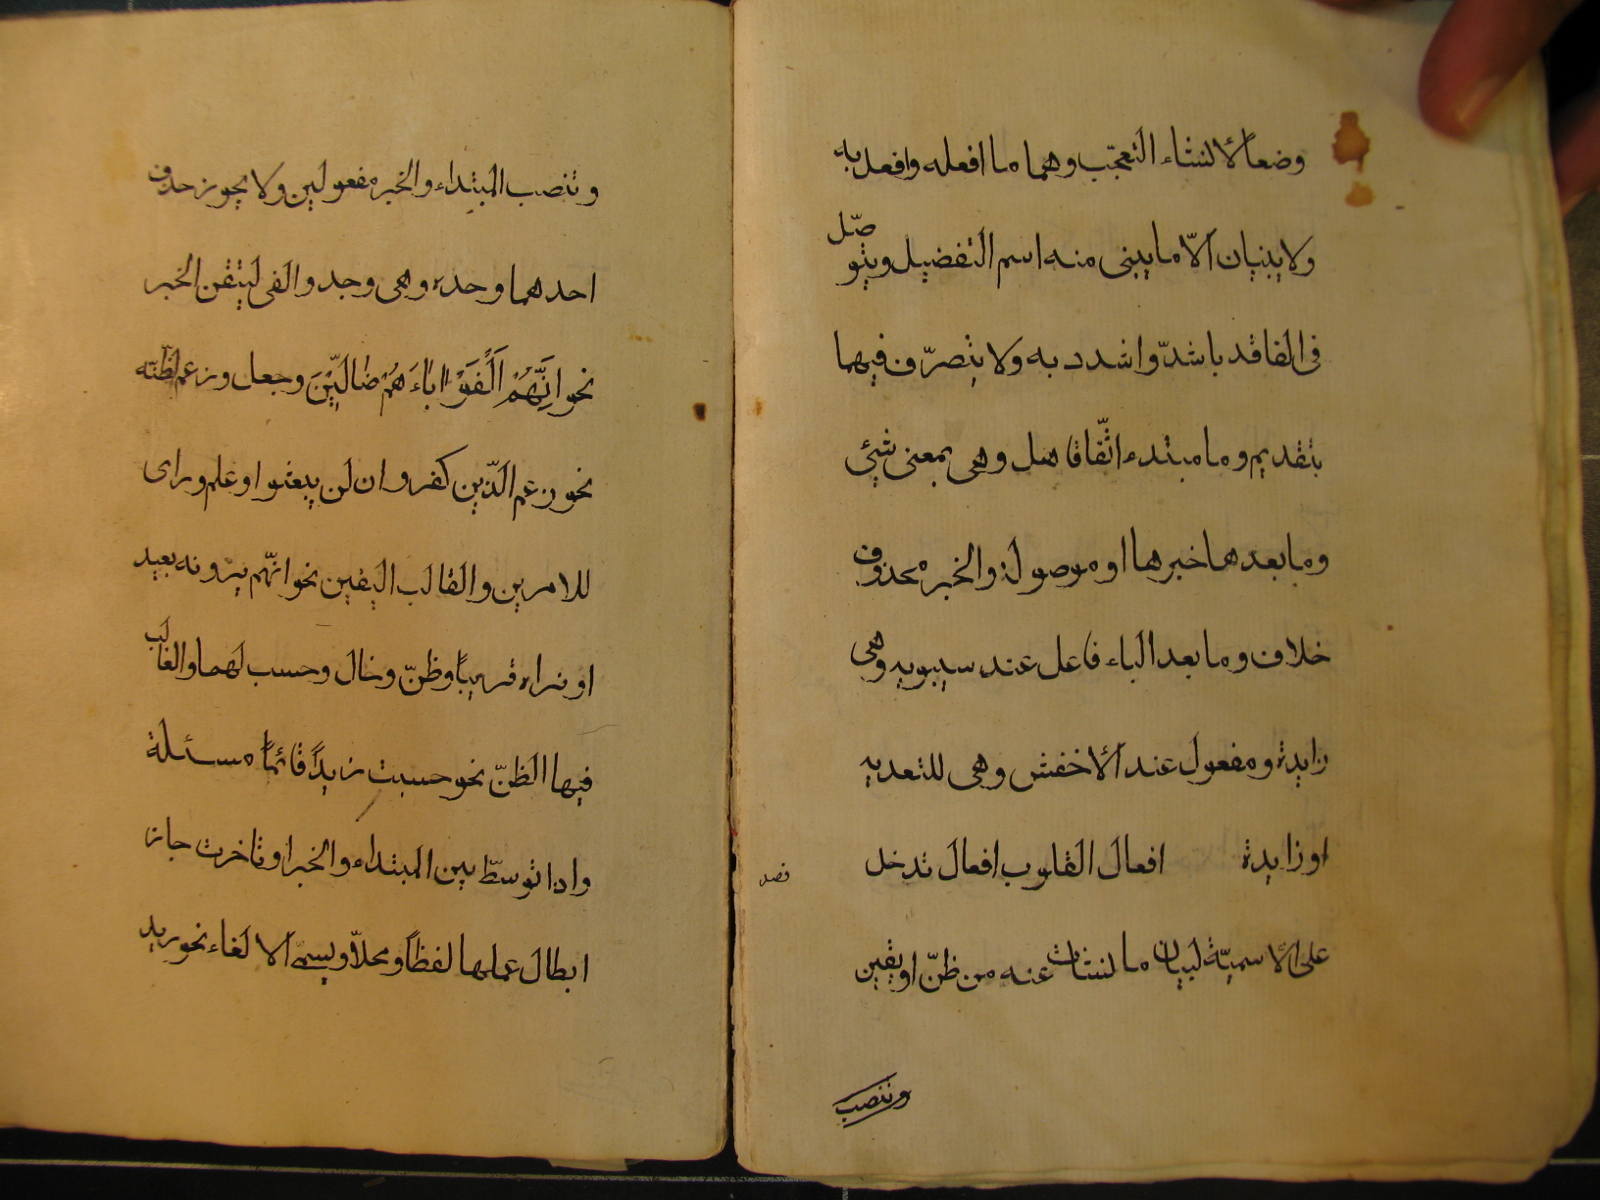 وضعاً لأنشاء التعجّب وهما ما افعله وافعل به
ولا يبنيان الّا ما يبنى منه اسم التفضيل ويتوصّل
فى الفاقد باشدّ واشدد به ولا يتصرّف فيهما
بتقديم وما مبتدء اتّفاقا هل وهى بمعنى شئي
وما بعدها خبرها او موصولة والخبر محذوف
خلاف وما بعد الباء فاعل عند سيبويه وهى
زايدة ومفعول عند الأخفش وهى للتعديه
او زايدة افعال القلوب افعال تدخل
فصل
على الأسميّة لبيان ما نشات عنه من ظنّ او يقين
وتنصب
وتنصب المبتداء والخبر مفعولين ولا يجوز حذف
احدهما وحده وهى وجد والفى لتيقن الخبر
نحو اِنَّهُمْ اَلْفَوْا اٰباءَهُمْ ضٰالّيْنَ وجعل وزعم لظنّه
نحو زعم الّذين كفروا ان لن يبعثوا وعلم وراى
للامرين والغالب اليقين نحو انّهم يرونه بعيد
او نراه قريباً وظنّ وخال وحسب لهما والغالب
فيها الظنّ نحو حسبت زيداً قائماً مسئلة
واذا توسطّ بين المبتداء والخبر او تاخرت جاز
ابطال عملها لفظاً ومحلاّ ويسمّى الالغاء نحو زيد